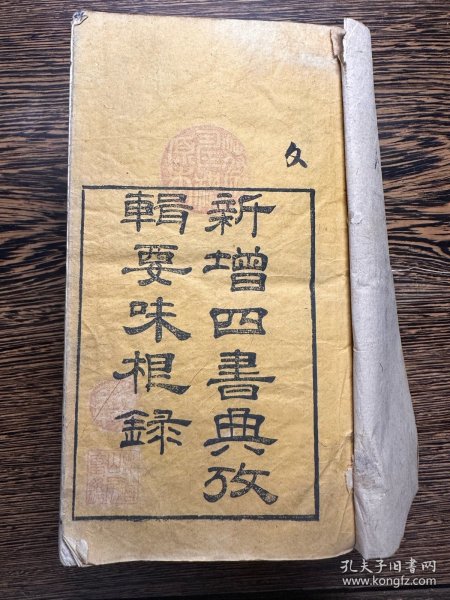 新增四書典攷
輯要味根錄
攵
孔夫子旧书网
www.kongfz.com